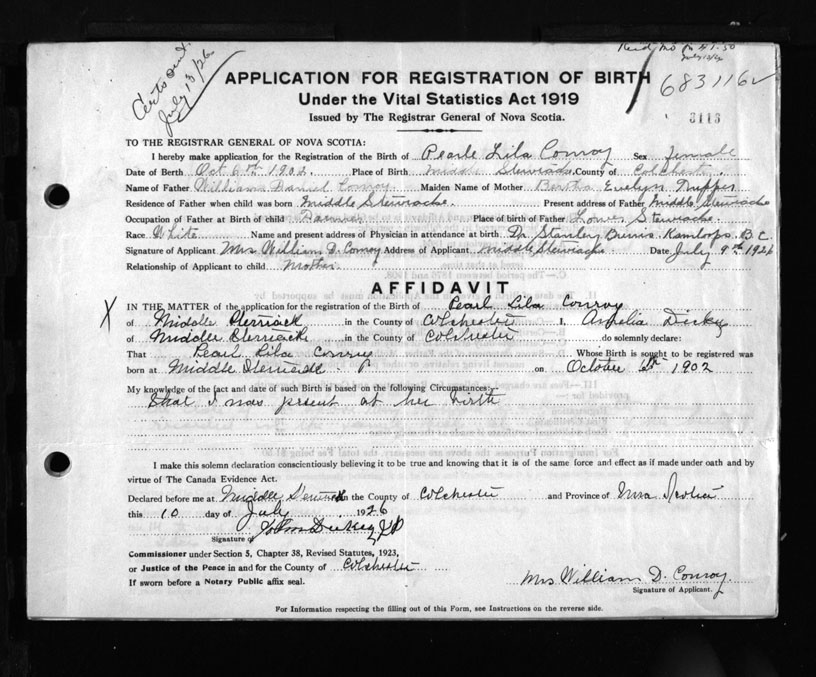 Certs sent. July 13/26
July 13/26
683116
3113
APPLICATION FOR REGISTRATION OF BIRTH
Under the Vital Statistics Act 1919
Issued by The Registrar General of Nova Scotia.
TO THE REGISTRAR GENERAL OF NOVA SCOTIA:
I hereby make application for the Registration of the Birth of Pearle Lila Conroy Sex female
Date of Berth Oct 6th 1902. Place of Birth Middle Stewiacke County of Colchester
Name of Father William Daniel Conroy Maiden Name of Mother Bertha Evelyn
Residence of Father when child was born Middle Stewiacke. Present address of Father Middle Stewiacke
Occupation of Father at Birth of child Farmer Place of birth of Father Lower Stewiacke.
Race White Name and present address of Physician in attendance at birth Dr Stanley Kamloops. B.C.
Signature of Applicant Mrs William D. Conroy Address of Applicant Middle Stewiacke Date July 9th 1926
Relationship of Applicant to child Mother
AFFIDAVIT
X
IN THE MATTER of the application for the registration of the Birth of Pearl Lila Conroy
of Middle in the County of Colchester I, Amelia
of Middle in the County of Colchester do solemnly declare:
That Pearl Lila Conroy Whose Birth is sought to be registered was
born at Middle on October 1902
My knowledge of the fact and date of such Birth is based on the following Circumstances:
That I was present at her birth
I make this solemn declaration conscientiously believing it to be true and knowing that it is of the same force and effect as if made under oath and by
virtue of The Canada Evidence Act.
Declared before me at Middle in the County of Colchester and Province of Nova Scotia
this 10 day of July 1926
Signature of John JP
Commissioner under Section 5, Chapter 38, Revised Statutes, 1923,
or Justice of the Peace in and for the County of Colchester
If sworn before a Notary Public affix seal.
Mrs William D. Conroy
Signature of Applicant.
For Information respecting the filling out of this Form, see Instructions on the reverse side.